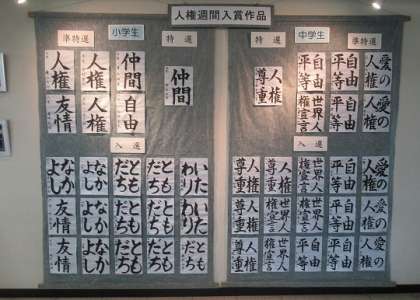 人権週間入賞作品
準特選
小学生
特選
人権
人権
仲間
仲間
友情
人権
自由
入選
なかよし
なかよし
ともだち
ともだち
いたわり
友情
なかよし
ともだち
ともだち
いたわり
友情
なかよし
ともだち
ともだち
ともだち
特選
中学生
準特選
人権尊重
自由平等
自由平等
愛の人権
世界人権宣言
自由平等
愛の人権
入選
人権尊重
人権尊重
世界人権宣言
自由平等
愛の人権
人権尊重
世界人権宣言
世界人権宣言
自由平等
愛の人権
人権尊重
世界人権宣言
自由平等
自由平等
愛の人権